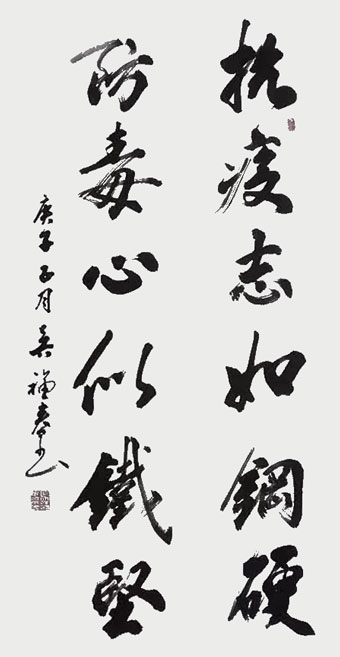 抗疫志如鋼硬
防毒心似鐵堅
庚子子月吳福春书